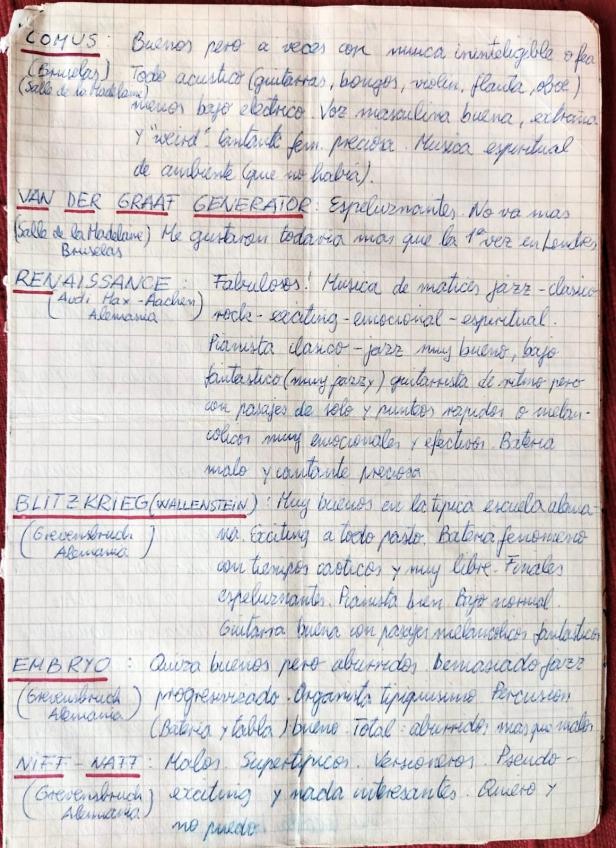 COMUS: Buenos pero a veces con musica ininteligible o fea
(Bruselas) Todo acustico (guitarras, bongos, violin, flauta, oboe)
(Salle de la Madelaine) menos bajo electrico. Voz masculina buena, extraña
y "weird". Cantante fem. preciosa. Musica espiritual
de ambiente (que no habia).
VAN DER GRAAF GENERATOR: Espeluznantes. No va mas
(Salle de la Madelaine) Me gustaron todavia mas que la 1ª vez en Londres
Bruselas
RENAISSANCE: Fabulosos! Musica de matices jazz-clasico
(Audi Max-Aachen) rock-exciting-emocional-espiritual.
Alemania
Pianista clasico-jazz muy bueno, bajo
fantastico (muy jazzy) guitarrista de ritmo pero
con pasajes de solo y punteos rapidos o melan-
cólicos muy emocionales y efectivos. Bateria
malo y cantante preciosa
BLITZKRIEG (WALLENSTEIN): Muy buenos en la tipica escuela alema-
(Grevensbruch na. Exciting a todo pasto. Bateria fenomeno
Alemania) con tiempos caoticos y muy libre. Finales
espeluznantes. Pianista bien. Bajo normal.
Guitarra buena con pasajes melancolicos fantasticos
EMBRYO: Quiza buenos pero aburridos. Demasiado jazz
(Grevensbruch progresivizado. Organista tipiquisimo Percusion
Alemania) (Bateria y tabla) bueno. Total: aburridos mas que malos.
NIFF-NATT: Malos. Supertipicos. Versioneros. Pseudo-
(Grevensbruch exciting y nada interesantes. Quiero y
Alemania) no puedo